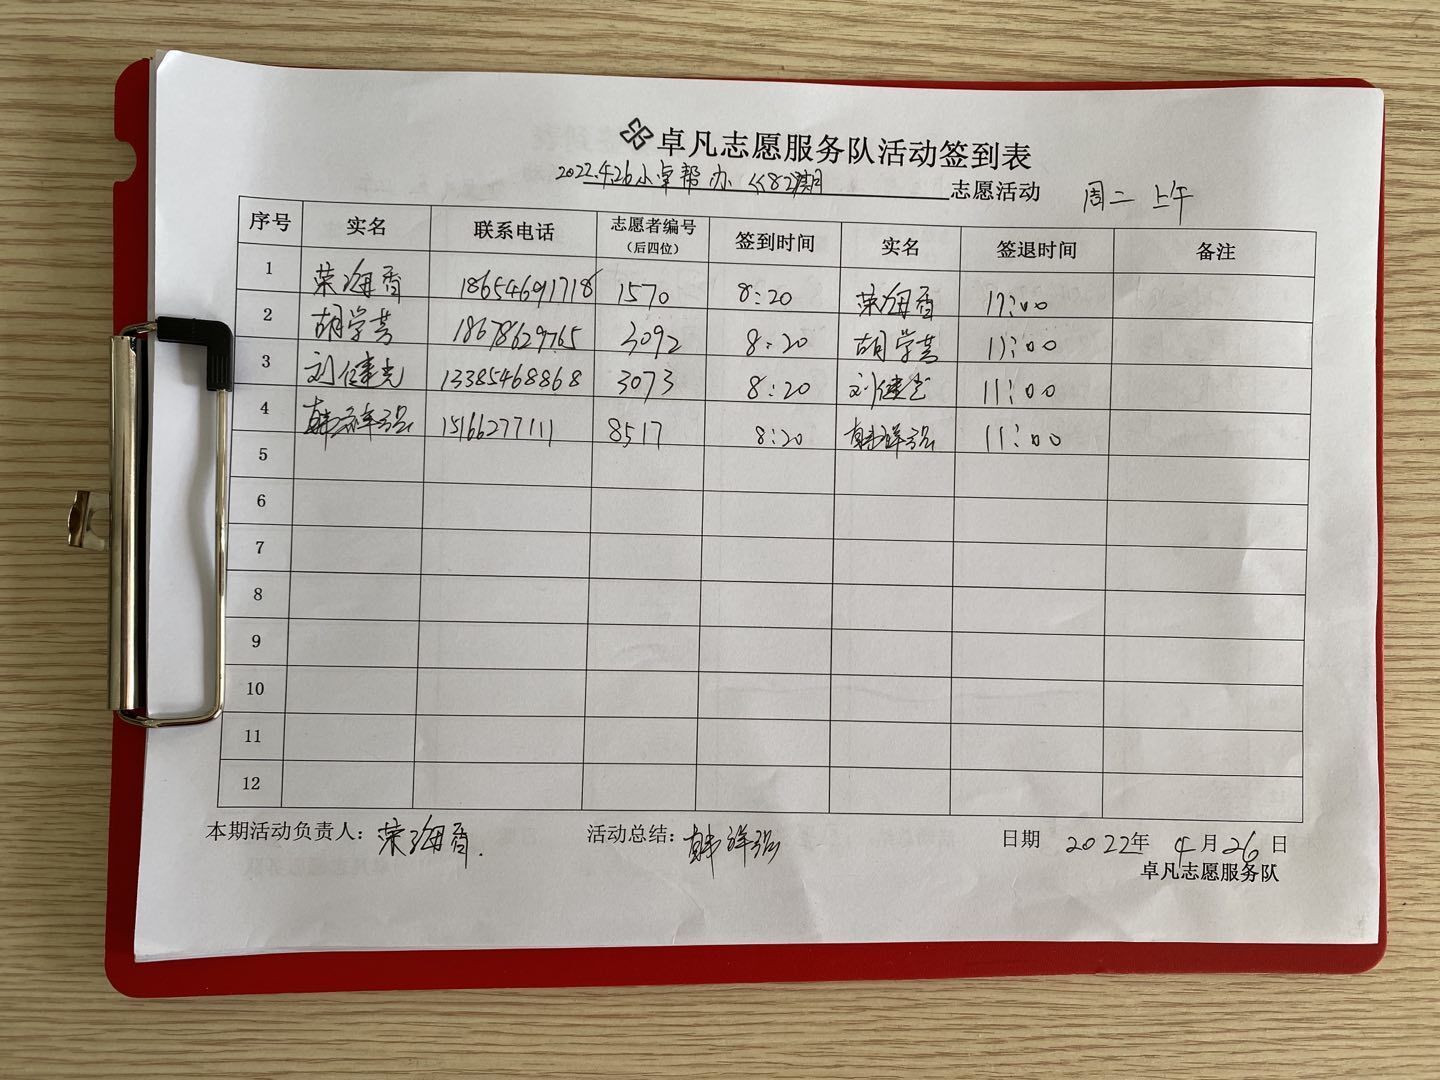 卓凡志愿服务队活动签到表
2022.4.26小卓帮办《82》期 志愿活动 周二 上午
序号 实名 联系电话 志愿者编号(后四位) 签到时间 实名 签退时间 备注
1 荣海香 18654691718 1570 8:20 荣海香 11:00
2 胡学芸 18678629765 3092 8:20 胡学芸 11:00
3 刘健光 13385468868 3073 8:20 刘健光 11:00
4 韩祥强 15166277111 8517 8:20 韩祥强 11:00
5
6
7
8
9
10
11
12
本期活动负责人：荣海香. 活动总结：韩祥强 日期 2022年4月26日
卓凡志愿服务队